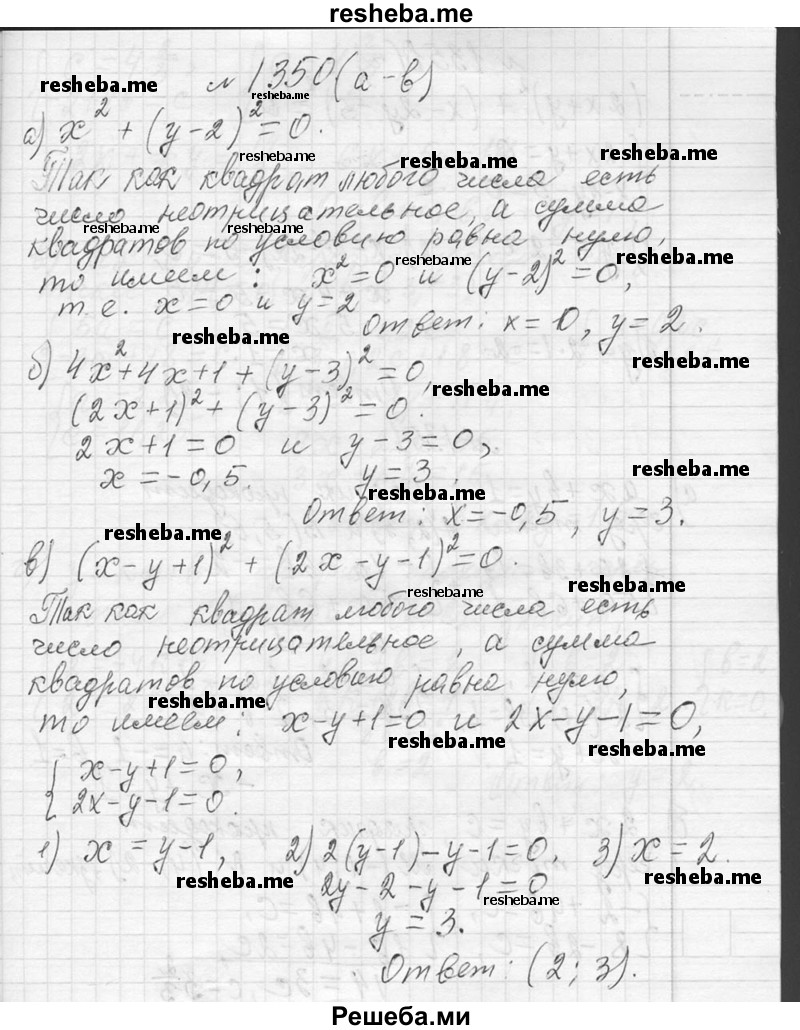 resheba.me
resheba.me № 1350 (а-в)
resheba.me
а) x² + (y-2)² = 0.
resheba.me resheba.me resheba.me
Так как квадрат любого числа есть
число неотрицательное, а сумма
resheba.me resheba.me
квадратов по условию равна нулю,
resheba.me resheba.me
то имеем: x² = 0 и (y-2)² = 0,
т.е. x = 0 и y = 2
resheba.me Ответ: x = 0, y = 2.
resheba.me
б) 4x² + 4x + 1 + (y-3)² = 0,
resheba.me
(2x+1)² + (y-3)² = 0.
2x + 1 = 0 и y - 3 = 0,
resheba.me
x = -0,5. y = 3.
resheba.me
Ответ: x = -0,5, y = 3.
resheba.me
в) (x-y+1)² + (2x-y-1)² = 0.
resheba.me
Так как квадрат любого числа есть
число неотрицательное, а сумма
квадратов по условию равна нулю,
resheba.me
то имеем: x-y+1=0 и 2x-y-1=0,
resheba.me resheba.me
{ x-y+1=0,
2x-y-1=0.
1) x = y-1, 2) 2(y-1)-y-1=0. 3) x = 2.
resheba.me resheba.me
2y-2-y-1=0
resheba.me
y = 3.
Ответ: (2; 3).
Решеба.ми